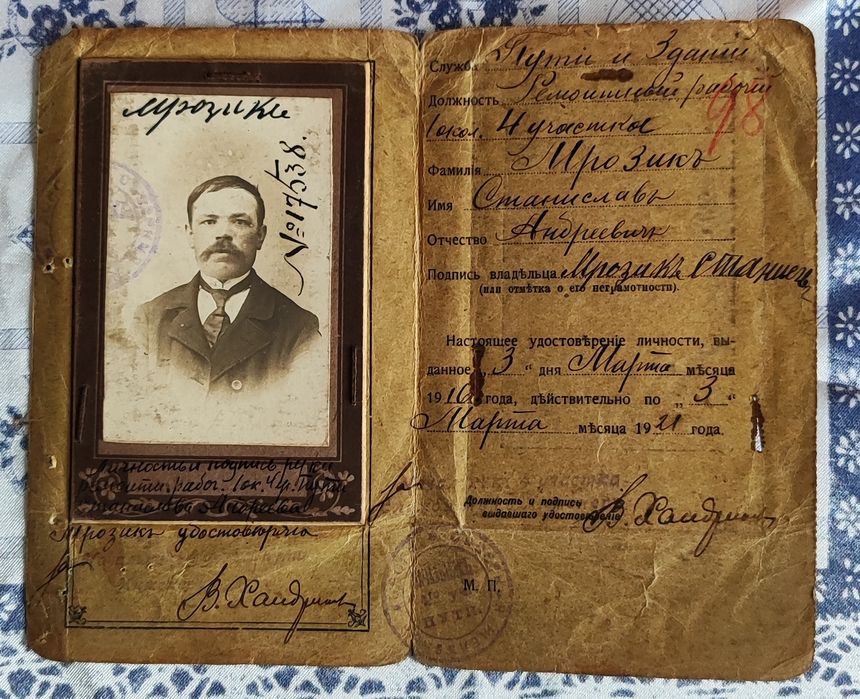 Мрозикъ
№ 17538.
Личность и подпись руки
ремонтн. рабоч. 1 ок. 4 уч.
Станислава Андреева
Мрозикъ удостовѣряю
за
В. Хандриков
Служба Пути и Зданій
Должность Ремонтный рабочій
1 окол. 4 участка
98
Фамилія Мрозикъ
Имя Станиславъ
Отчество Андреевичъ
Подпись владѣльца Мрозикъ Станисл
(или отмѣтка о его неграмотности).
Настоящее удостовѣреніе личности, вы-
данное „3“ дня Марта мѣсяца
1916 года, дѣйствительно по „3“
Марта мѣсяца 1921 года.
участка
Должность и подпись
выдавшаго удостовѣреніе
за В. Хандриков
М. П.
ПУТИ